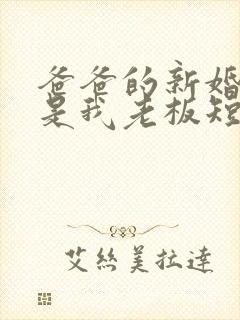 爸爸的新婚
是我老板短
艾絲美拉達